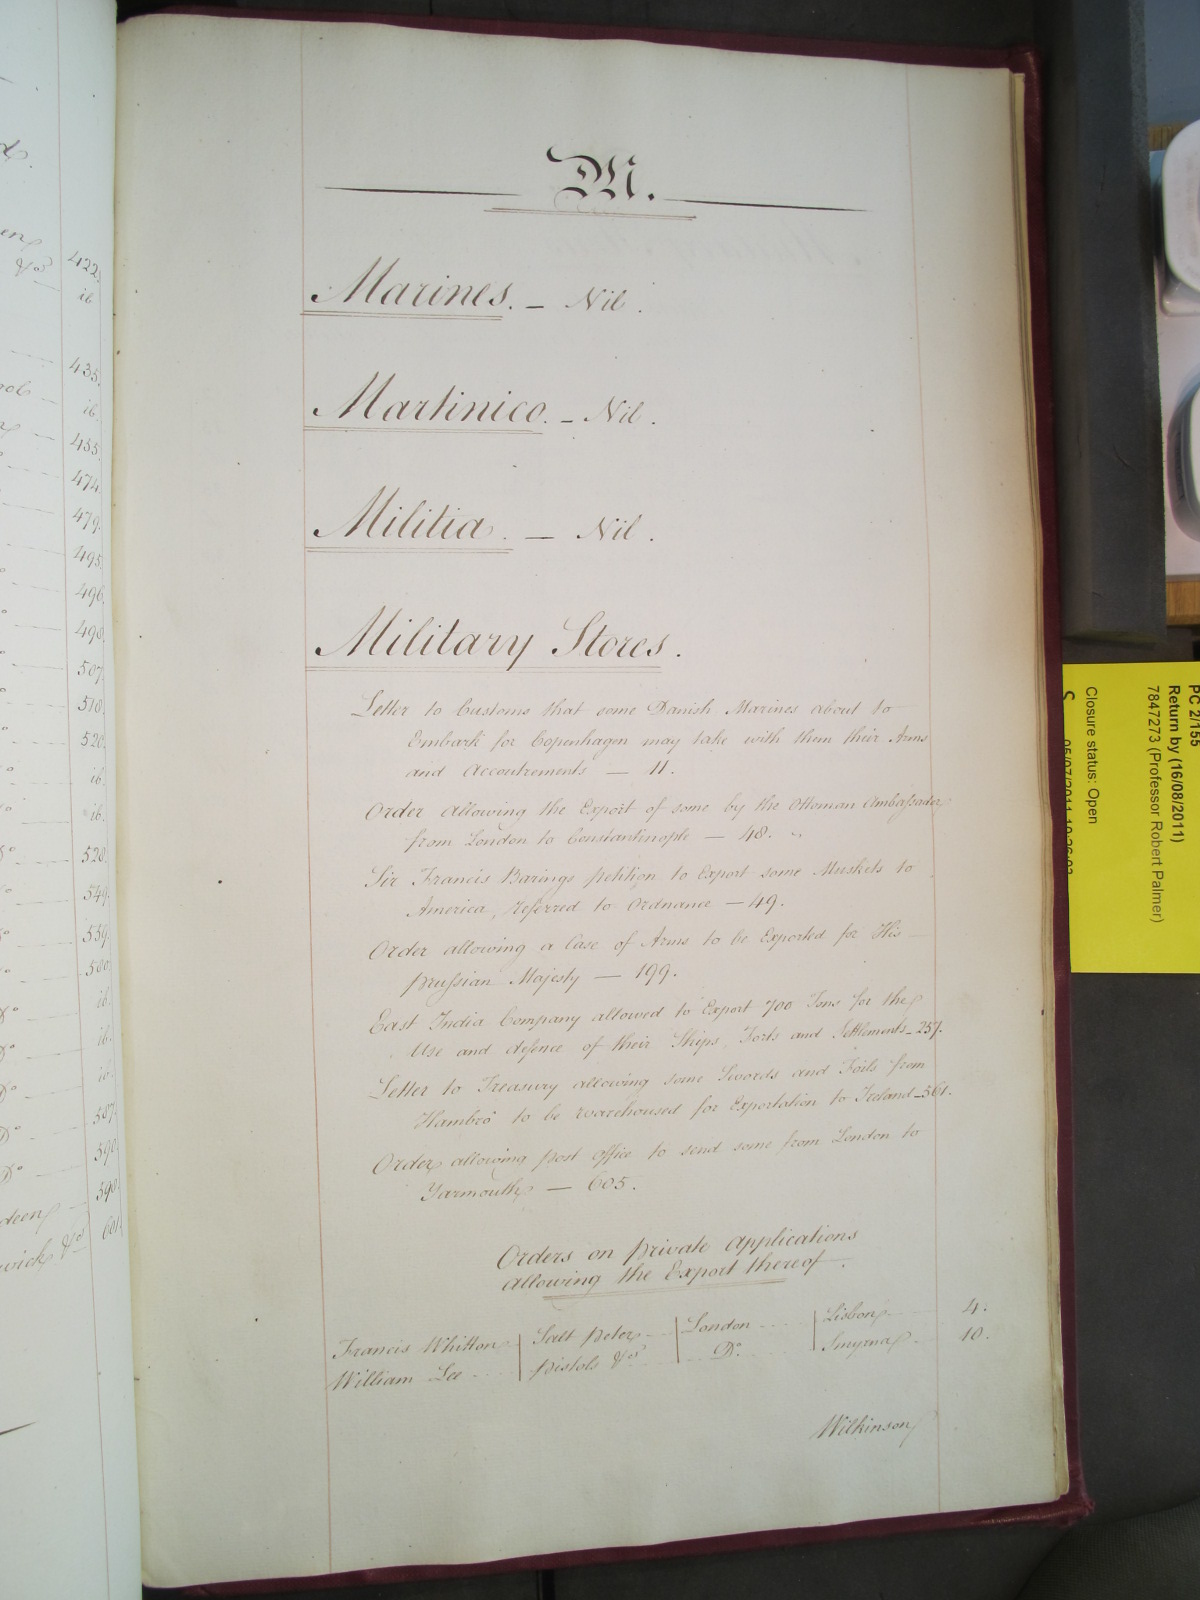 M.
Marines. — Nil.
Martinico. — Nil.
Militia. — Nil.
Military Stores.
Letter to Customs that some Danish Marines about to
Embark for Copenhagen may take with them their Arms
and Accoutrements — 11.
Order allowing the Export of some by the Ottoman Ambassador
from London to Constantinople — 48.
Sir Francis Barings petition to Export some Muskets to
America, referred to Ordnance — 49.
Order allowing a Case of Arms to be Exported for His
Prussian Majesty — 199.
East India Company allowed to Export 700 Tons for the
Use and defence of their Ships, Forts and Settlements — 257.
Letter to Treasury allowing some Swords and Foils from
Hambro' to be warehoused for Exportation to Ireland — 561.
Order allowing Post Office to send some from London to
Yarmouth — 605.
Orders on Private Applications
allowing the Export thereof.
Francis Whitton Salt Peter London Lisbon 4.
William Lee Pistols &c. Do. Smyrna 10.
Wilkinson
422.
ib
435.
ib.
455.
474.
479.
495.
496.
498.
507.
518.
520.
ib.
ib.
528.
549.
559.
580.
ib.
ib.
ib.
587.
590.
598.
601.
PC 2/155
Return by (16/08/2011)
7847273 (Professor Robert Palmer)
Closure status: Open